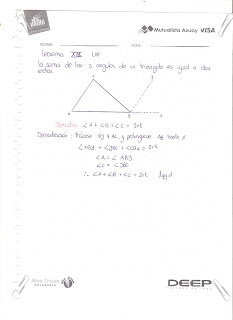 Mutualista Azuay VISA
NOMBRE: FECHA:
Teorema XIII (14)
la suma de los 3 angulos de un triangulo es igual a dos
rectos
∠A + ∠B + ∠C = 2rt
Demostracion: trácese BY ∥ AC y prolónguese AB hasta X
∠XBY + ∠YBC + ∠CBA = 2rt
∠A = ∠XBY
∠C = ∠YBC
∴ ∠A + ∠B + ∠C = 2rt lqqd
DEEP